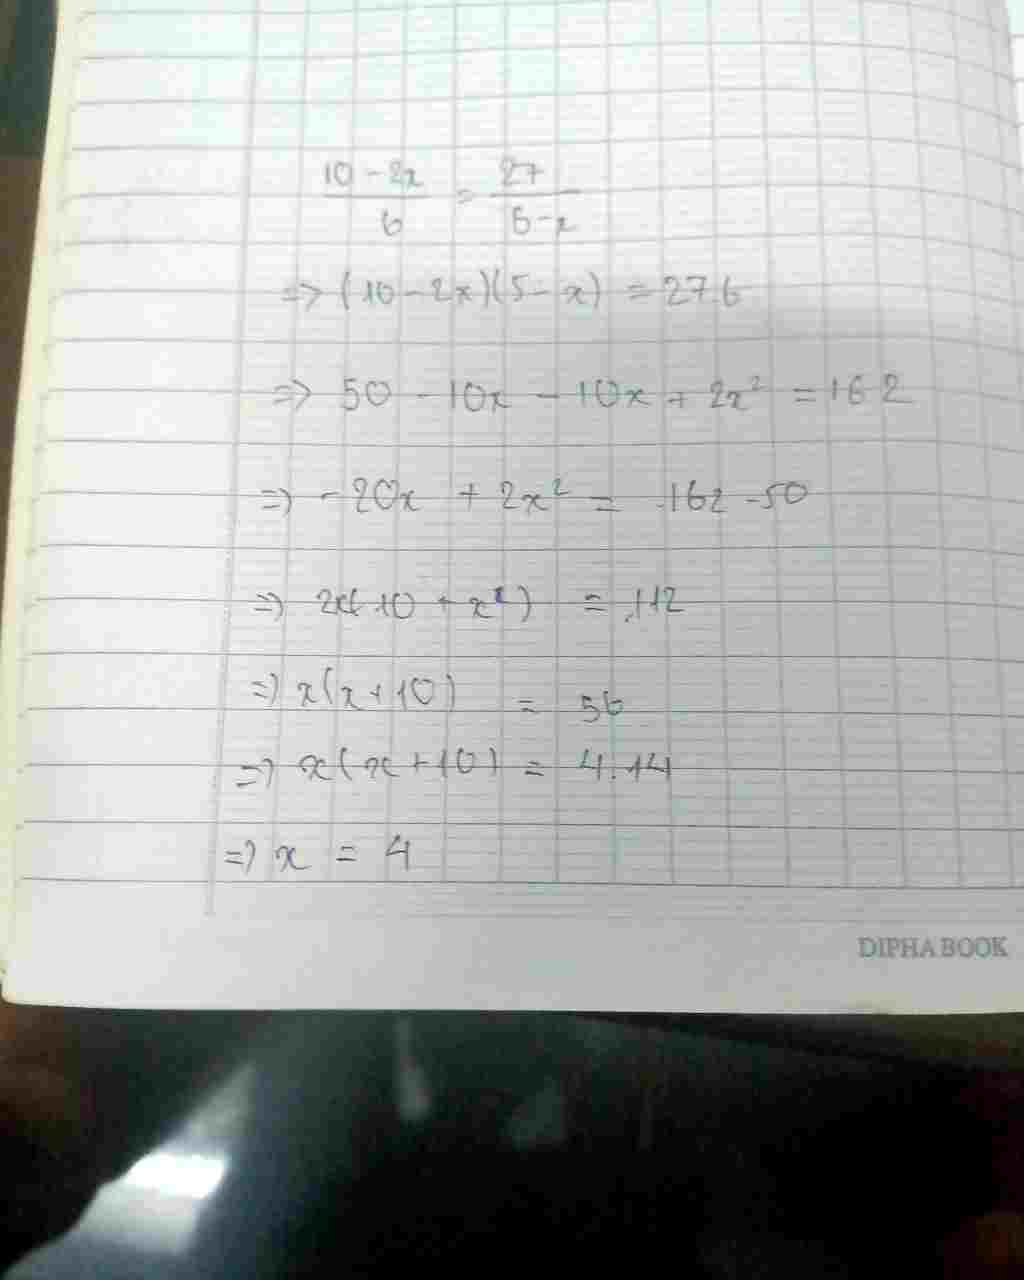 10 - 2x / 6 = 27 / 5-x
=> (10 - 2x)(5 - x) = 27.6
=> 50 - 10x - 10x + 2x² = 162
=> -20x + 2x² = 162 - 50
=> 2x(-10 + x²) = 112
=> x(x+10) = 56
=> x(x+10) = 4.14
=> x = 4
DIPHABOOK